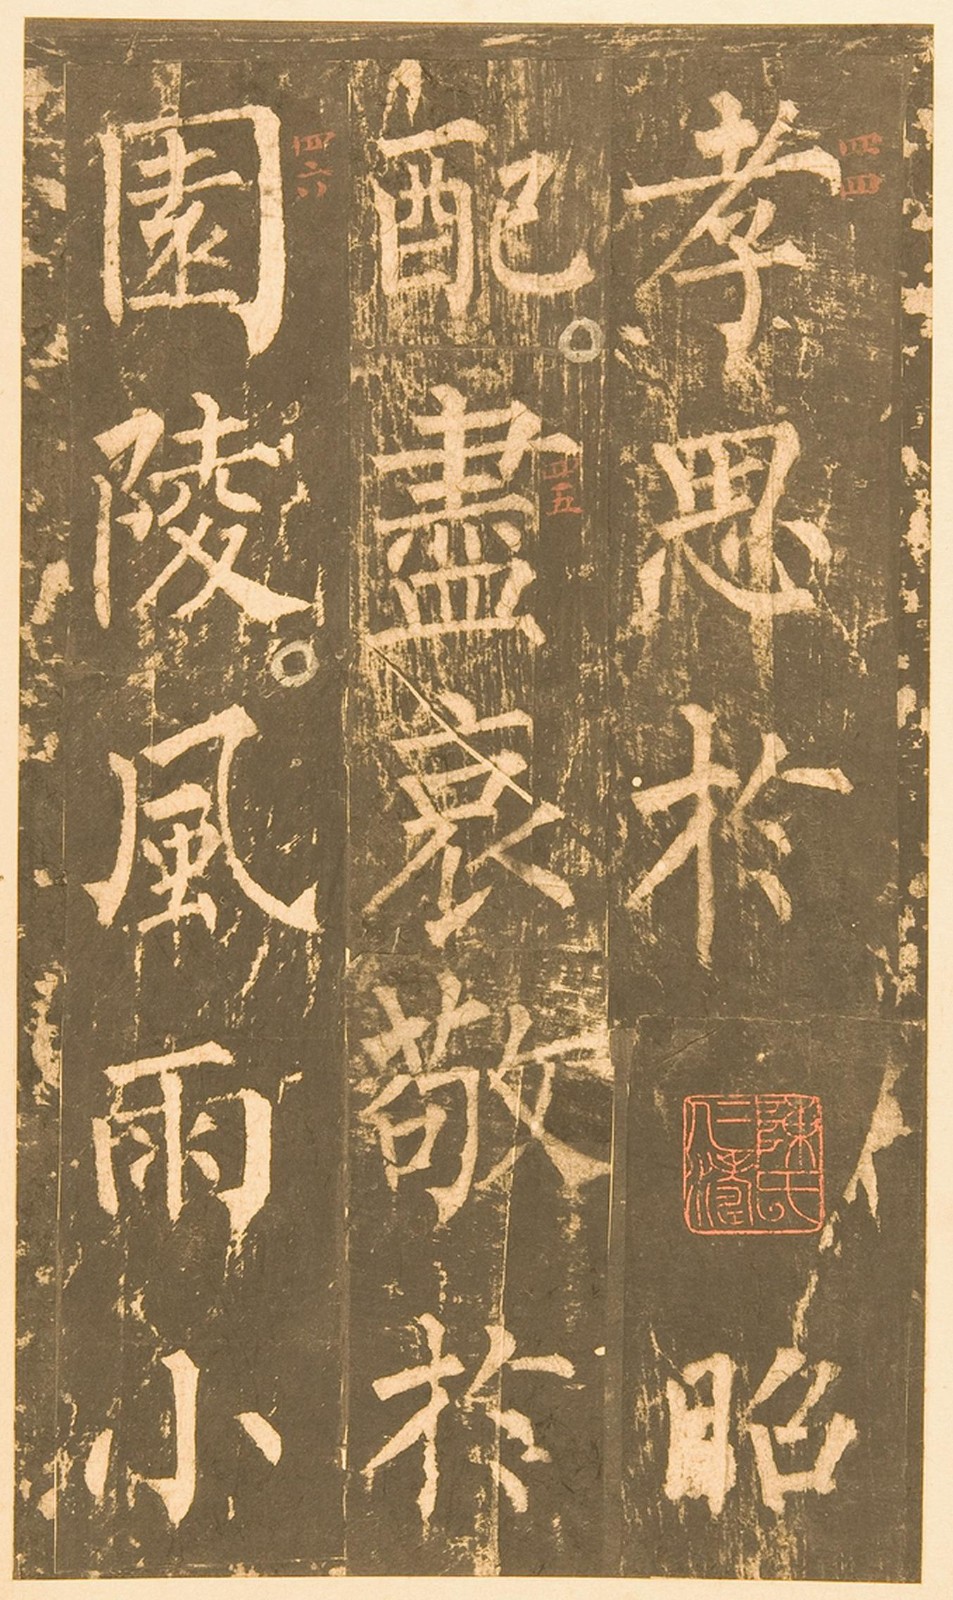 孝思於昭
配盡哀敬於
園陵風雨小
四四
四五
四六
陳氏